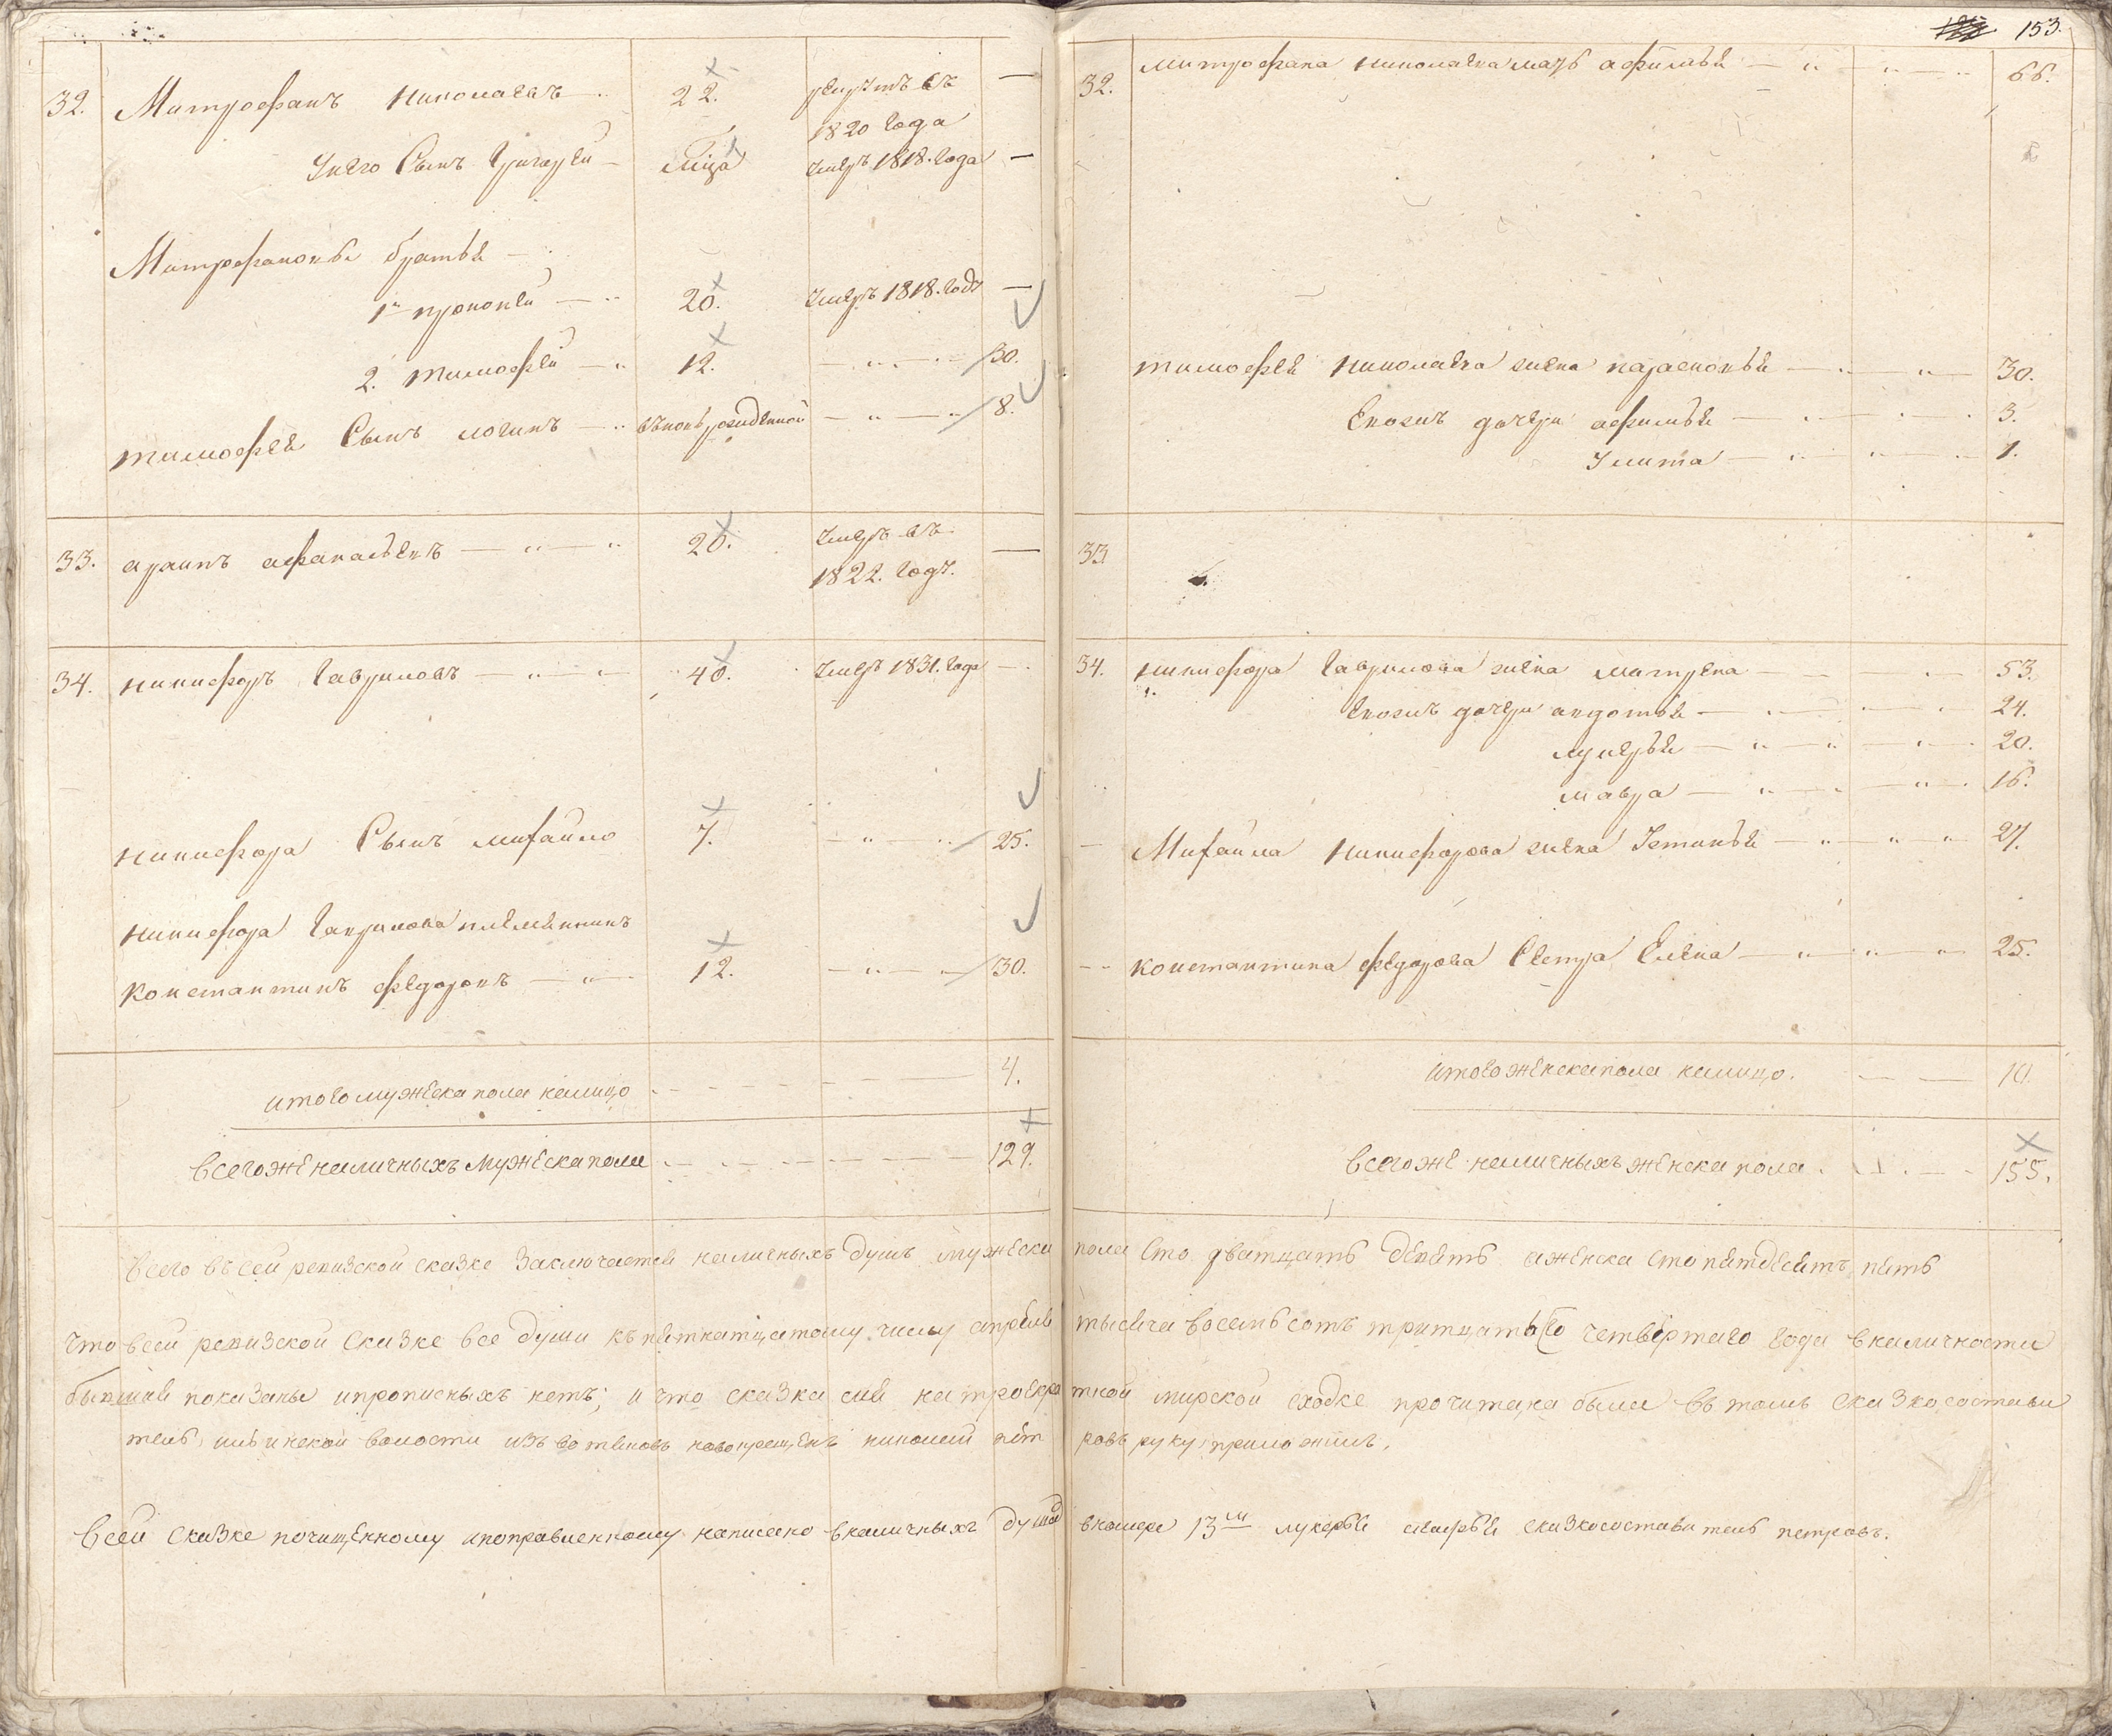 153.
32. Митрофанъ Николаевъ 22. рекрутъ въ —
1820 года
У него Сынъ Григорей умеръ 1818. года —
Митрофановы братья
1й прокопей 20. умеръ 1818. году —
2. тимофей 12. 30.
тимофея Сынъ логинъ вновь рожденной 8.
33. афанасьевъ 20. умеръ въ —
1822. году.
34. никифоръ Гавриловъ 40. умеръ 1831. года —
никифора Сынъ михайло 7. 25.
никифора Гаврилова племянникъ
константинъ федоровъ 12. 30.
итого мужеска пола налицо 4.
всегоже наличныхъ мужеска пола 129.
32. митрофана николаева мать афимья 66.
тимофея николаева жена парасковья 30.
Евоихъ дочери афимья 3.
Улита 1.
33
34. никифора Гаврилова жена матрена 53.
Евоихъ дочери авдотья 24.
лукерья 20.
мавра 16.
Михайла никифорова жена Устинья 27.
константина федорова Сестра Елена 25.
итого женска пола налицо. 10.
всегоже наличныхъ женска пола. 155.
всего въ сей ревизской сказке заключается наличныхъ душъ мужеска пола сто дватцать девять аженска сто пятдесятъ пять
что всей ревизской сказке все души къ пятнатцатому числу апреля тысяча восемьсотъ тритцать четвертаго года вналичности
бывшия показаны ипрописныхъ нетъ; и что сказка сия на троекратной мирской сходке прочитана была въ томъ сказкосостави
тель, ильинской волости изъ вотяковъ новокрещенъ николай петровъ руку приложилъ.
всей сказке почищенному ипоправленному написано вналичныхъ душа вномере 13м лукерья сказкосоставитель петровъ.